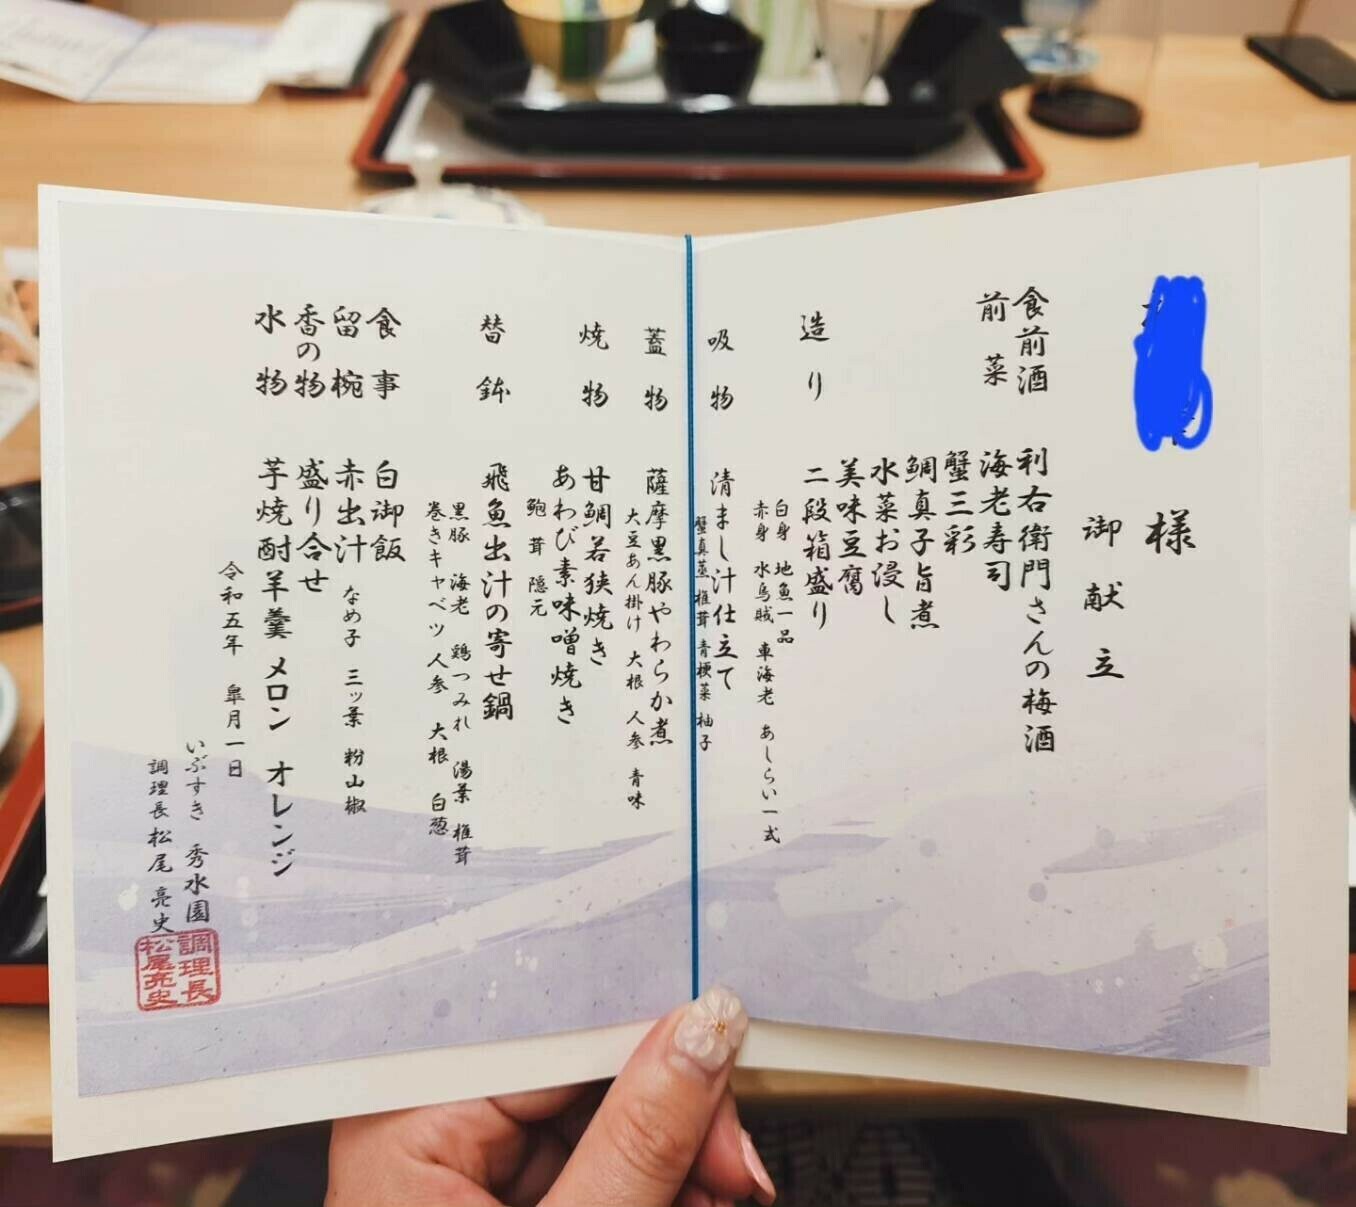 様
御献立
食前酒 利右衛門さんの梅酒
前菜 海老寿司
蟹三彩
鯛真子旨煮
水菜お浸し
美味豆腐
造り 二段箱盛り
白身 地魚一品
赤身 水烏賊 車海老 あしらい一式
吸物 清まし汁仕立て
蟹真蒸 椎茸 青梗菜 柚子
蓋物 薩摩黒豚やわらか煮
大豆あん掛け 大根 人参 青味
焼物 甘鯛若狭焼き
あわび素味噌焼き
鮑茸 隠元
替鉢 飛魚出汁の寄せ鍋
黒豚 海老 鶏つみれ 湯葉 椎茸
巻きキャベツ 人参 大根 白葱
食事 白御飯
留椀 赤出汁 なめ子 三ッ葉 粉山椒
香の物 盛り合せ
水物 芋焼酎羊羹 メロン オレンジ
令和五年 皐月一日
いぶすき 秀水園
調理長 松尾 亮史
調理長
松尾亮史